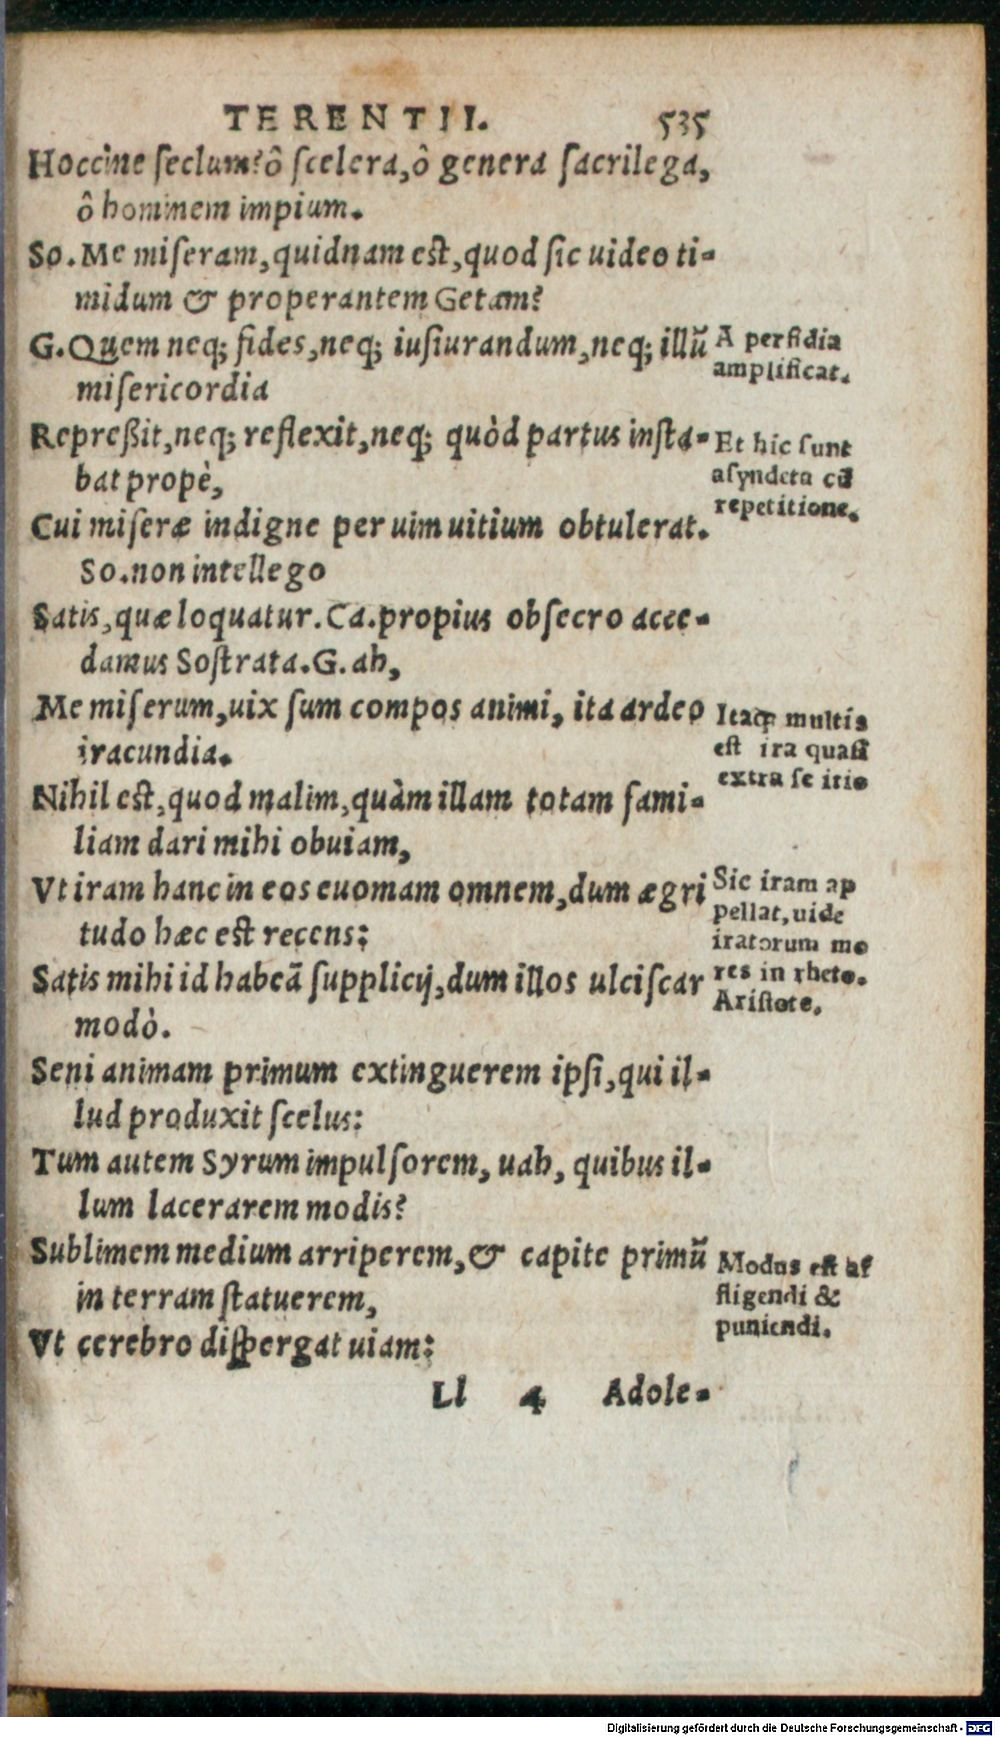 TERENTII. 535
Hoccine seclum? ô scelera, ô genera sacrilega,
ô hominem impium.
So. Me miseram, quidnam est, quod sic uideo ti-
midum & properantem Getam?
G. Quem neq; fides, neq; iusiurandum, neq; illũ
misericordia
Repreßit, neq; reflexit, neq; quòd partus insta-
bat propè,
Cui miseræ indigne per uim uitium obtulerat.
So. non intellego
Satis, quæ loquatur. Ca. propius obsecro acce-
damus Sostrata. G. ah,
Me miserum, uix sum compos animi, ita ardeo
iracundia.
Nihil est, quod malim, quàm illam totam fami-
liam dari mihi obuiam,
Vt iram hanc in eos euomam omnem, dum ægri
tudo hæc est recens:
Satis mihi id habeã supplicij, dum illos ulciscar
modò.
Seni animam primum extinguerem ipsi, qui il-
lud produxit scelus:
Tum autem Syrum impulsorem, uah, quibus il-
lum lacerarem modis?
Sublimem medium arriperem, & capite primũ
in terram statuerem,
Vt cerebro dispergat uiam:
Ll 4 Adole-
A perfidia
amplificat.
Et hic sunt
asyndeta cũ
repetitione.
Itaq; multis
est ira quasi
extra se itio
Sic iram ap
pellat, uide
iratorum mo
res in rheto.
Aristote.
Modus est af
fligendi &
puniendi.
Digitalisierung gefördert durch die Deutsche Forschungsgemeinschaft - DFG